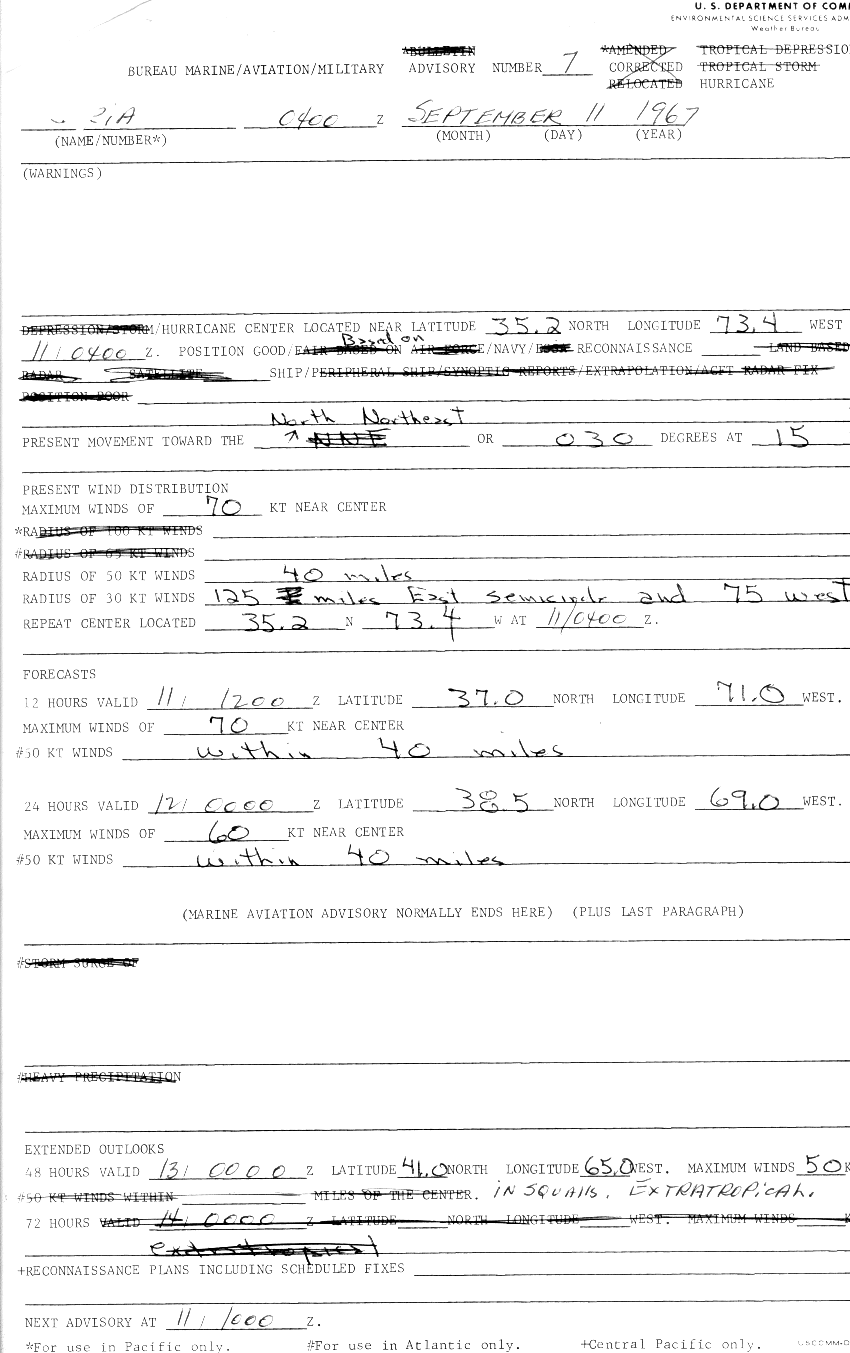 U. S. DEPARTMENT OF COM
ENVIRONMENTAL SCIENCE SERVICES ADM
Weather Bureau
BULLETIN *AMENDED TROPICAL DEPRESSIO
BUREAU MARINE/AVIATION/MILITARY ADVISORY NUMBER 7 CORRECTED TROPICAL STORM
RELOCATED HURRICANE
0400 Z SEPTEMBER 11 1967
(NAME/NUMBER*) (MONTH) (DAY) (YEAR)
(WARNINGS)
DEPRESSION/STORM/HURRICANE CENTER LOCATED NEAR LATITUDE 35.2 NORTH LONGITUDE 73.4 WEST
Based on
11/0400 Z. POSITION GOOD/FAIR BASED ON AIR FORCE/NAVY/ RECONNAISSANCE LAND BASED
RADAR SATELLITE SHIP/PERIPHERAL SHIP/SYNOPTIC REPORTS/EXTRAPOLATION/ACFT RADAR FIX
POSITION POOR
North Northeast
PRESENT MOVEMENT TOWARD THE NNE OR 030 DEGREES AT 15
PRESENT WIND DISTRIBUTION
MAXIMUM WINDS OF 70 KT NEAR CENTER
*RADIUS OF 100 KT WINDS
#RADIUS OF 65 KT WINDS
RADIUS OF 50 KT WINDS 40 miles
RADIUS OF 30 KT WINDS 125 miles East semicircle and 75 west
REPEAT CENTER LOCATED 35.2 N 73.4 W AT 11/0400 Z.
FORECASTS
12 HOURS VALID 11/ 1200 Z LATITUDE 37.0 NORTH LONGITUDE 71.0 WEST.
MAXIMUM WINDS OF 70 KT NEAR CENTER
#50 KT WINDS within 40 miles
24 HOURS VALID 12/ 0000 Z LATITUDE 38.5 NORTH LONGITUDE 69.0 WEST.
MAXIMUM WINDS OF 60 KT NEAR CENTER
#50 KT WINDS within 40 miles
(MARINE AVIATION ADVISORY NORMALLY ENDS HERE) (PLUS LAST PARAGRAPH)
#STORM SURGE OF
#HEAVY PRECIPITATION
EXTENDED OUTLOOKS
48 HOURS VALID 13/ 0000 Z LATITUDE 41.0 NORTH LONGITUDE 65.0 WEST. MAXIMUM WINDS 50 K
#50 KT WINDS WITHIN MILES OF THE CENTER. IN SQUALLS. EXTRATROPICAL.
72 HOURS VALID 14/ 0000 Z LATITUDE NORTH LONGITUDE WEST. MAXIMUM WINDS K
extratropical
+RECONNAISSANCE PLANS INCLUDING SCHEDULED FIXES
NEXT ADVISORY AT 11/ 1000 Z.
*For use in Pacific only. #For use in Atlantic only. +Central Pacific only. USCOMM-D